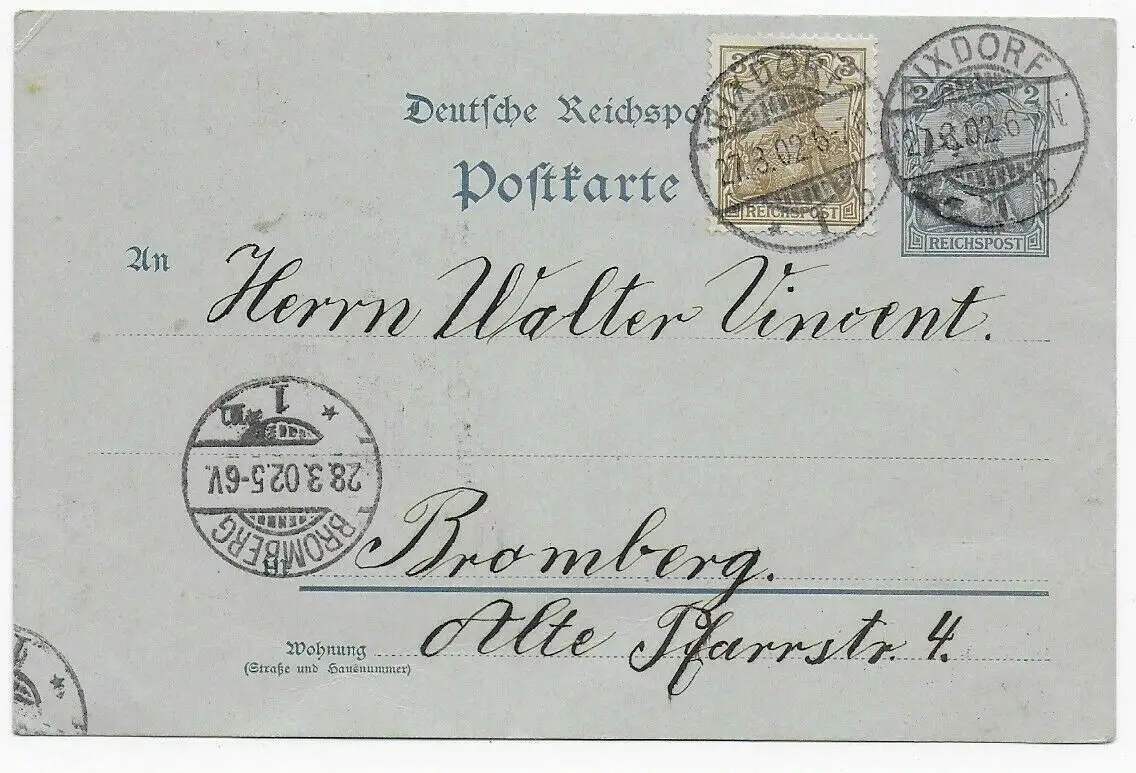 Deutsche Reichspo
Postkarte
3 3
REICHSPOST
RIXDORF
27.3.02.6-
* 1 b
2 2
REICHSPOST
RIXDORF
27.3.02.6 N
b
An
Herrn Walter Vincent.
1
28.3.02.5-6V.
BROMBERG
Bromberg.
Alte Pfarrstr. 4.
Wohnung
(Straße und Hausnummer)
1